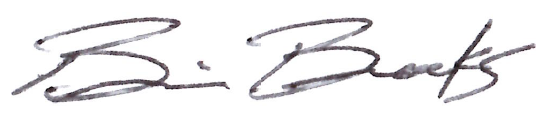 Bri Brooks